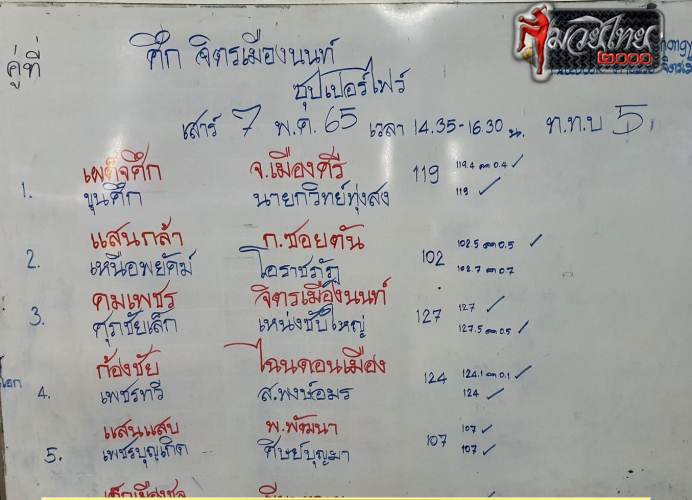 มวยไทย
๒๐๐๐
ศึก จิตรเมืองนนท์
คู่ที่
ซุปเปอร์ไฟว์
เสาร์ 7 พ.ค. 65 เวลา 14.35-16.30 น. ท.ท.บ 5
เผด็จศึก จ.เมืองศรี 119 119.4 ลด 0.4 ✓
1. ขุนศึก นายกวิทย์ทุ่งสง 119 ✓
แสนกล้า ก.ซอยตัน 102 102.5 ลด 0.5 ✓
2. เหนือพยัคฆ์ ไอราชภัฏ 102.7 ลด 0.7
คมเพชร จิตรเมืองนนท์ 127 127 ✓
3. ศุภชัยเล็ก เหน่งซับใหญ่ 127.5 ลด 0.5 ✓
ก้องชัย ไฉนดอนเมือง 124 124.1 ลด 0.1 ✓
เอก 4. เพชรทวี ส.พงษ์อมร 124 ✓
แสนแสบ พ.พัฒนา 107 107 ✓
5. เพชรบุญเกิด ศิษย์บุญมา 107 ✓